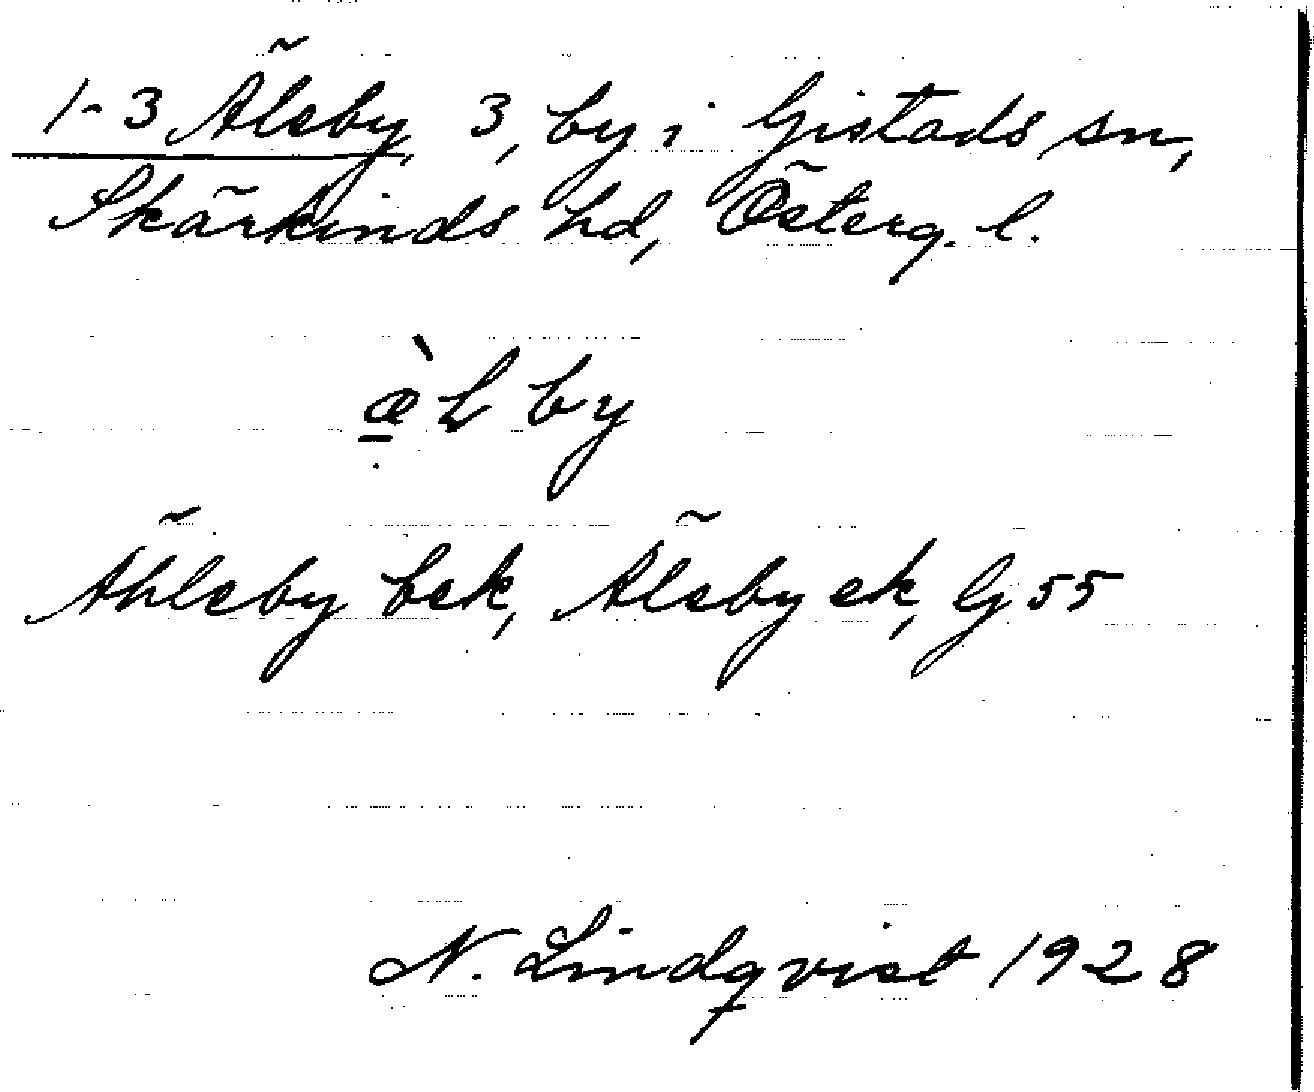 1-3 Älsby, 3, by i Gistads sn,
Skärkinds hd, Österg. l.
æ̠̀L by
Ählsby bek, Älsby ek, G 55
N. Lindqvist 1928